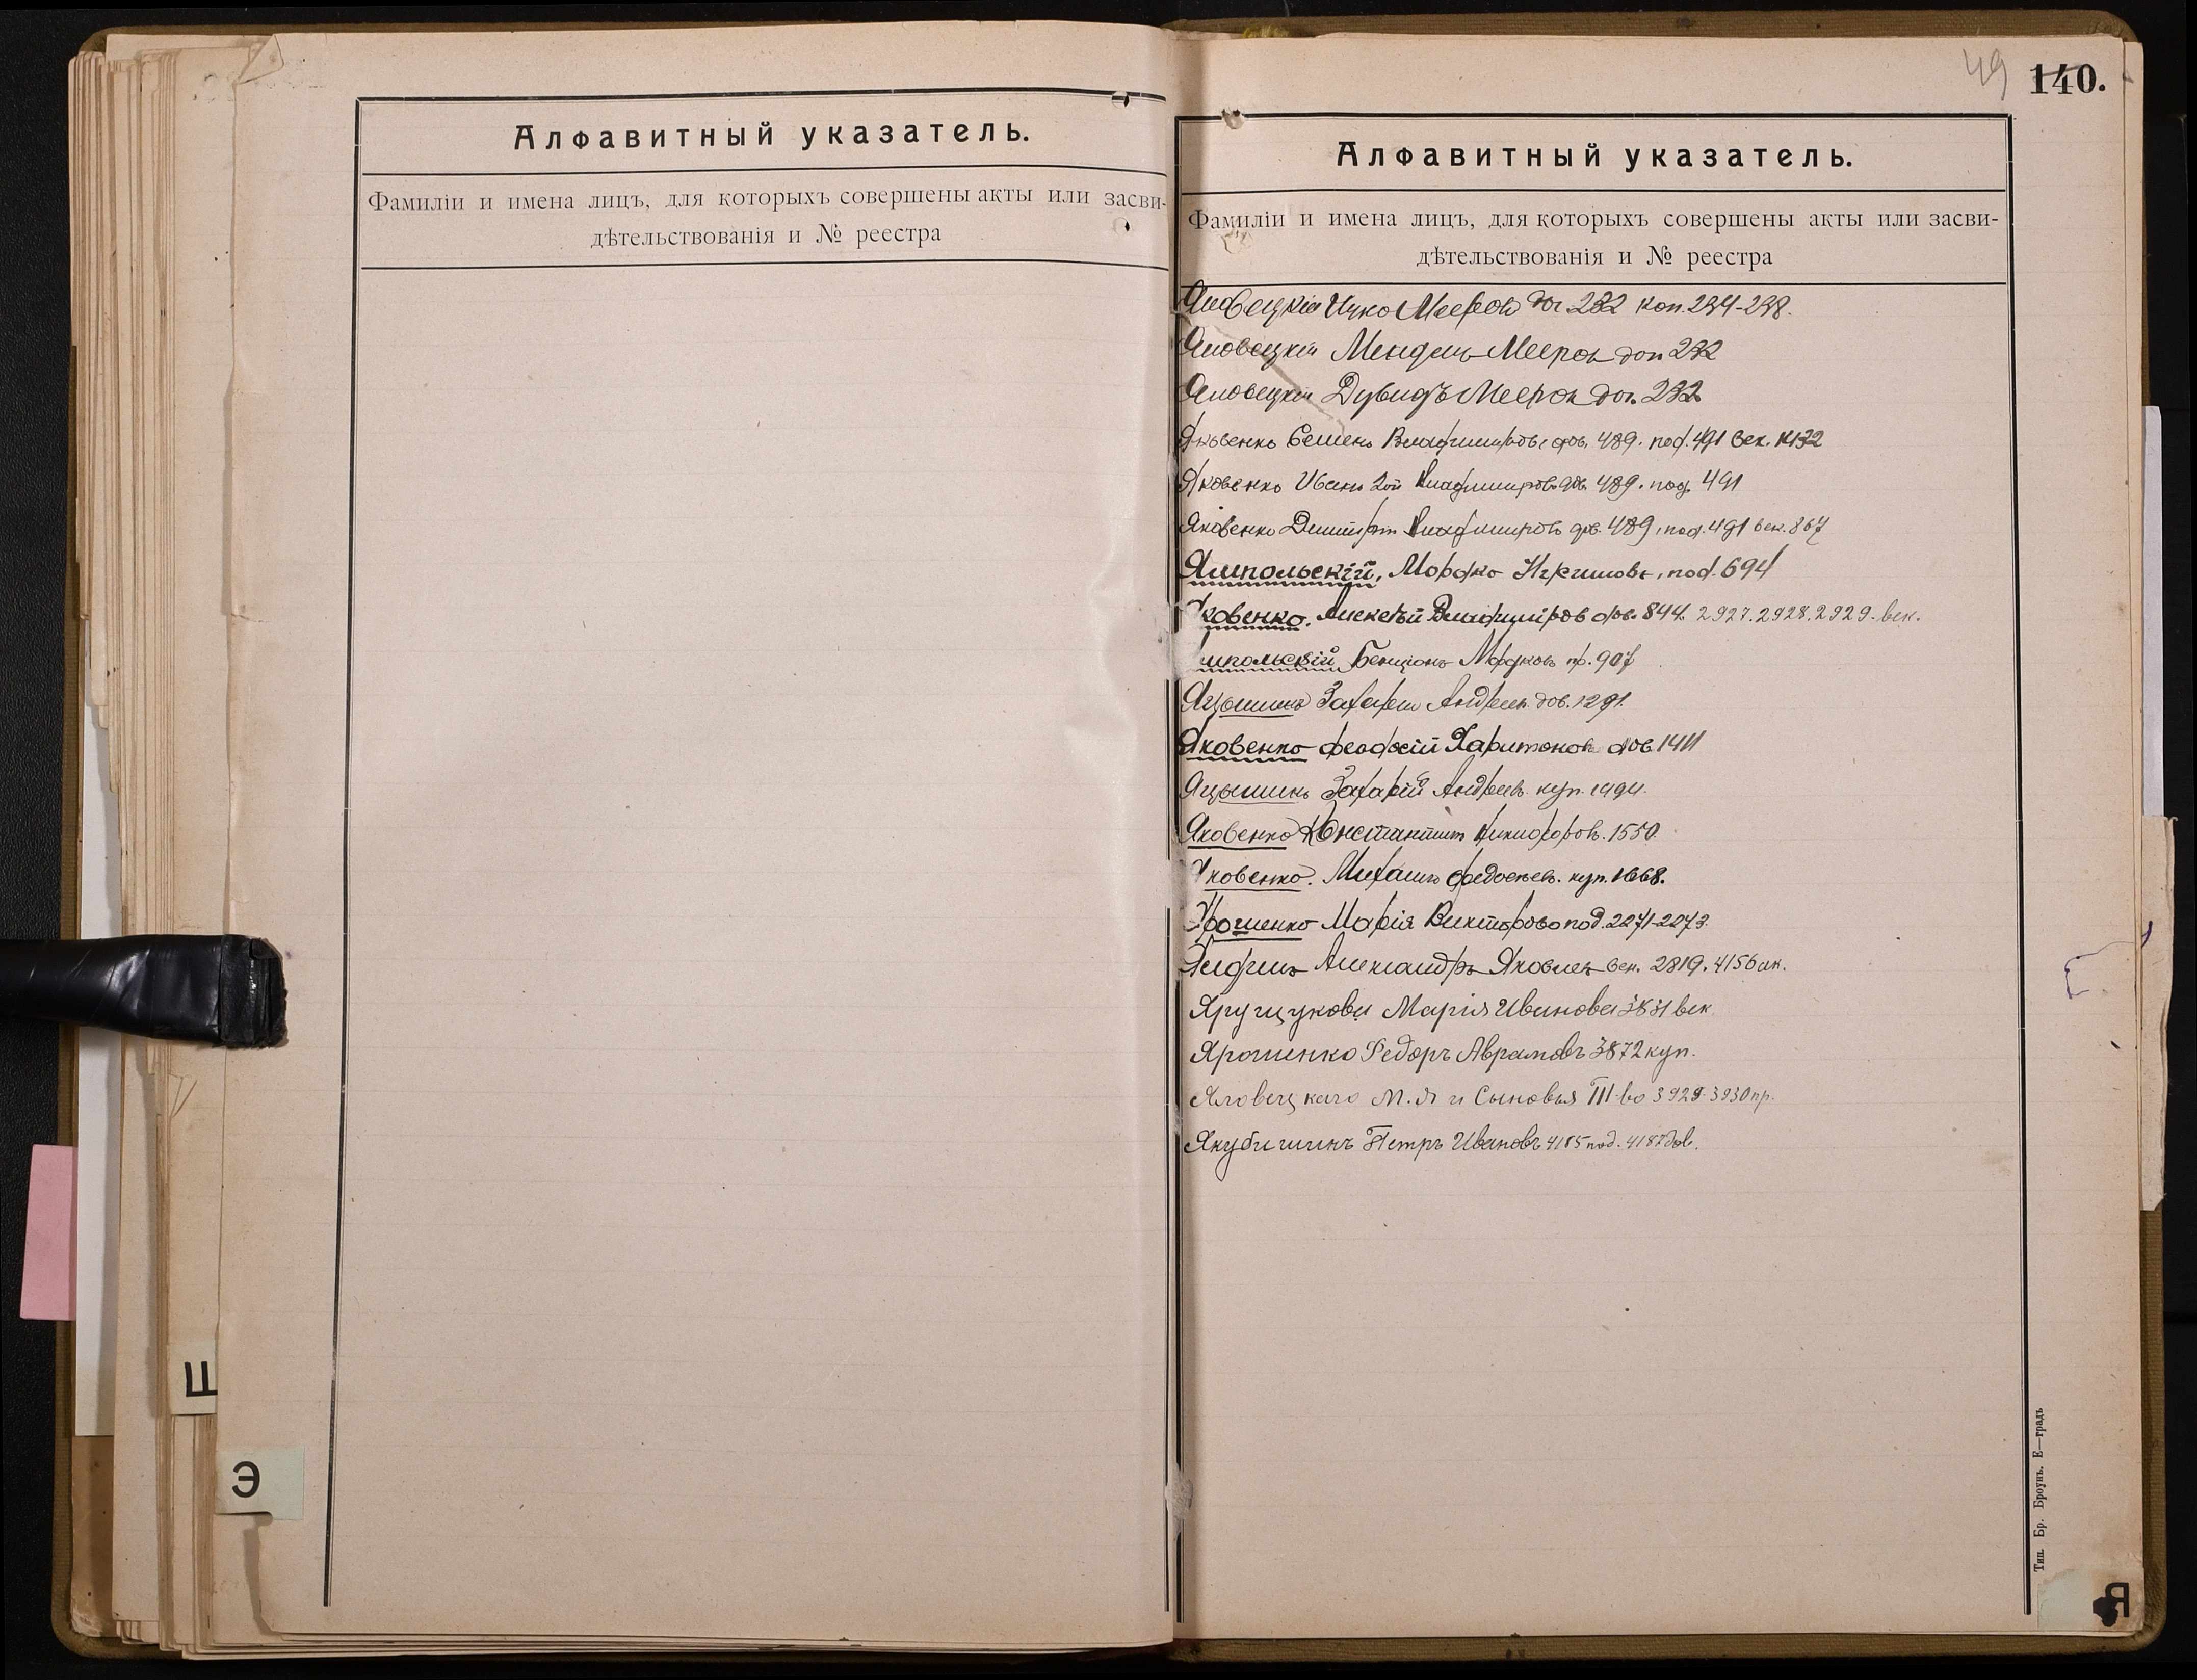 Алфавитный указатель.
Фамиліи и имена лицъ, для которыхъ совершены акты или засви-
дѣтельствованія и № реестра
49
140.
Алфавитный указатель.
Фамиліи и имена лицъ, для которыхъ совершены акты или засви-
дѣтельствованія и № реестра
Яловецкій Ицко Мееров дог. 232 коп. 234-238.
Яловецкій Мендель Мееров дог 232
Яловецкій Дувидъ Мееров дог. 232
Яковенко Семенъ Владиміров дов. 489. под. 491 век. 1132
Яковенко Иванъ 2ой Владиміров дов. 489. под. 491
Яковенко Димитрій Владиміровъ дов. 489, под. 491 век. 867
Ямпольскій, Мордко под. 694
Яковенко. Алексѣй Владиміров дов. 844. 2927. 2928. 2929. век.
Ямпольскій Бенціонъ Мордков пр. 907
Яцышинъ Захарій Андреев. дов. 1291.
Яковенко Харитонов дов. 1411
Яцышинъ Захарій Андреев. куп. 1494.
Яковенко Константин Никифоровъ. 1550.
Яковенко. Михаилъ Федосѣев. куп. 1668.
Ярошенко Марія Викторова под. 2271-2273.
Александръ Яковлев век. 2819. 4156 ак.
Марія Иванова 3831 век
Ярошенко Федоръ Аврамовъ 3872 куп.
Яловецкаго М. Я и Сыновья Т-во 3929-3930 пр.
Якубишинъ Петръ Ивановъ 4185 под. 4187 дов.
Ш
Э
Тип. Бр. Броунъ. Е—градъ
Я